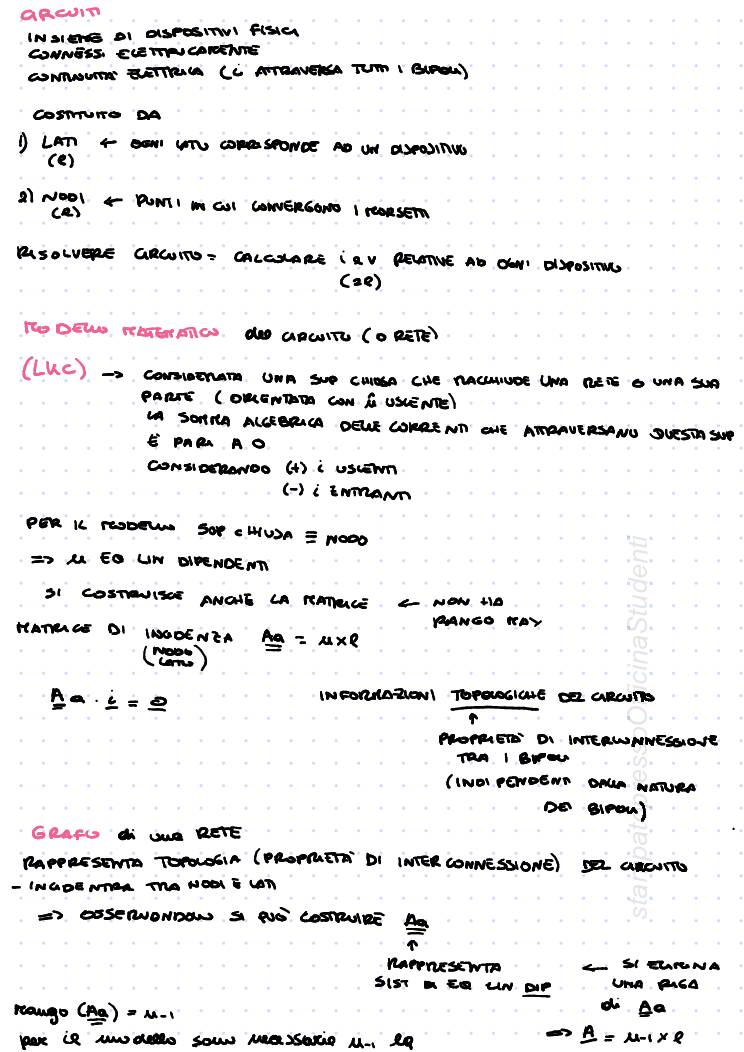 CIRCUITI
INSIEME DI DISPOSITIVI FISICI
CONNESSI ELETTRICAMENTE
CONTINUITÀ ELETTRICA (i ATTRAVERSA TUTTI I BIPOLI)
COSTITUITO DA
1) LATI ← OGNI LATO CORRISPONDE AD UN DISPOSITIVO
(ℓ)
2) NODI ← PUNTI IN CUI CONVERGONO I MORSETTI
RISOLVERE CIRCUITO = CALCOLARE i e V RELATIVE AD OGNI DISPOSITIVO
(2ℓ)
MODELLO MATEMATICO del CIRCUITO (O RETE)
(LKC) → CONSIDERATA UNA SUP CHIUSA CHE RACCHIUDE UNA RETE O UNA SUA
PARTE (ORIENTATA CON n̂ USCENTE)
LA SOMMA ALGEBRICA DELLE CORRENTI CHE ATTRAVERSANO QUESTA SUP
È PARI A 0
CONSIDERANDO (+) i USCENTI
(-) i ENTRANTI
PER IL MODELLO SUP CHIUSA ≡ NODO
=> n EQ LIN DIPENDENTI
SI COSTRUISCE ANCHE LA MATRICE ← NON HA
RANGO MAX
MATRICE DI INCIDENZA Aa = n×ℓ
(NODO
LATO)
A a · i = 0
INFORMAZIONI TOPOLOGICHE DEL CIRCUITO
↑
PROPRIETÀ DI INTERCONNESSIONE
TRA I BIPOLI
(INDIPENDENTI DALLA NATURA
DEI BIPOLI)
GRAFO di una RETE
RAPPRESENTA TOPOLOGIA (PROPRIETÀ DI INTERCONNESSIONE) DEL CIRCUITO
- INCIDENTRA TRA NODI E LATI
=> OSSERVANDOLO SI PUÒ COSTRUIRE Aa
↑
RAPPRESENTA ← SI ELIMINA
SIST DI EQ LIN DIP UNA RIGA
di Aa
rango (Aa) = n-1
=> A = n-1 × ℓ
per il modello sono necessarie n-1 eq
stampato presso OfficinaStudenti